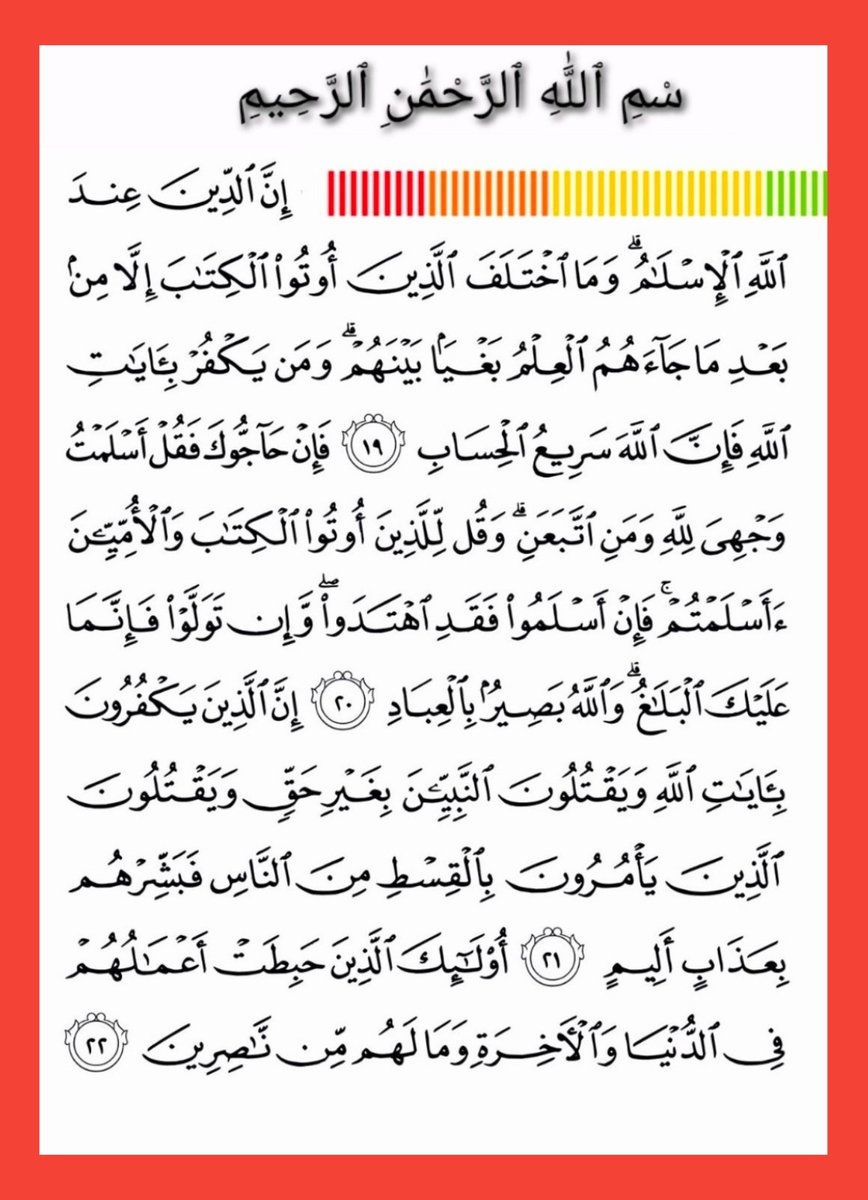 سْمِ ٱللَّٰهِ ٱلرَّحْمَٰنِ ٱلرَّحِيمِ
إِنَّ ٱلدِّينَ عِندَ
ٱللَّهِ ٱلْإِسْلَٰمُ ۗ وَمَا ٱخْتَلَفَ ٱلَّذِينَ أُوتُوا۟ ٱلْكِتَٰبَ إِلَّا مِنۢ
بَعْدِ مَا جَآءَهُمُ ٱلْعِلْمُ بَغْيَۢا بَيْنَهُمْ ۗ وَمَن يَكْفُرْ بِـَٔايَٰتِ
ٱللَّهِ فَإِنَّ ٱللَّهَ سَرِيعُ ٱلْحِسَابِ ١٩ فَإِنْ حَآجُّوكَ فَقُلْ أَسْلَمْتُ
وَجْهِىَ لِلَّهِ وَمَنِ ٱتَّبَعَنِ ۗ وَقُل لِّلَّذِينَ أُوتُوا۟ ٱلْكِتَٰبَ وَٱلْأُمِّيِّـۧنَ
ءَأَسْلَمْتُمْ ۚ فَإِنْ أَسْلَمُوا۟ فَقَدِ ٱهْتَدَوا۟ ۖ وَّإِن تَوَلَّوْا۟ فَإِنَّمَا
عَلَيْكَ ٱلْبَلَٰغُ ۗ وَٱللَّهُ بَصِيرٌۢ بِٱلْعِبَادِ ٢٠ إِنَّ ٱلَّذِينَ يَكْفُرُونَ
بِـَٔايَٰتِ ٱللَّهِ وَيَقْتُلُونَ ٱلنَّبِيِّـۧنَ بِغَيْرِ حَقٍّ وَيَقْتُلُونَ
ٱلَّذِينَ يَأْمُرُونَ بِٱلْقِسْطِ مِنَ ٱلنَّاسِ فَبَشِّرْهُم
بِعَذَابٍ أَلِيمٍ ٢١ أُو۟لَٰٓئِكَ ٱلَّذِينَ حَبِطَتْ أَعْمَٰلُهُمْ
فِى ٱلدُّنْيَا وَٱلْـَٔاخِرَةِ وَمَا لَهُم مِّن نَّٰصِرِينَ ٢٢